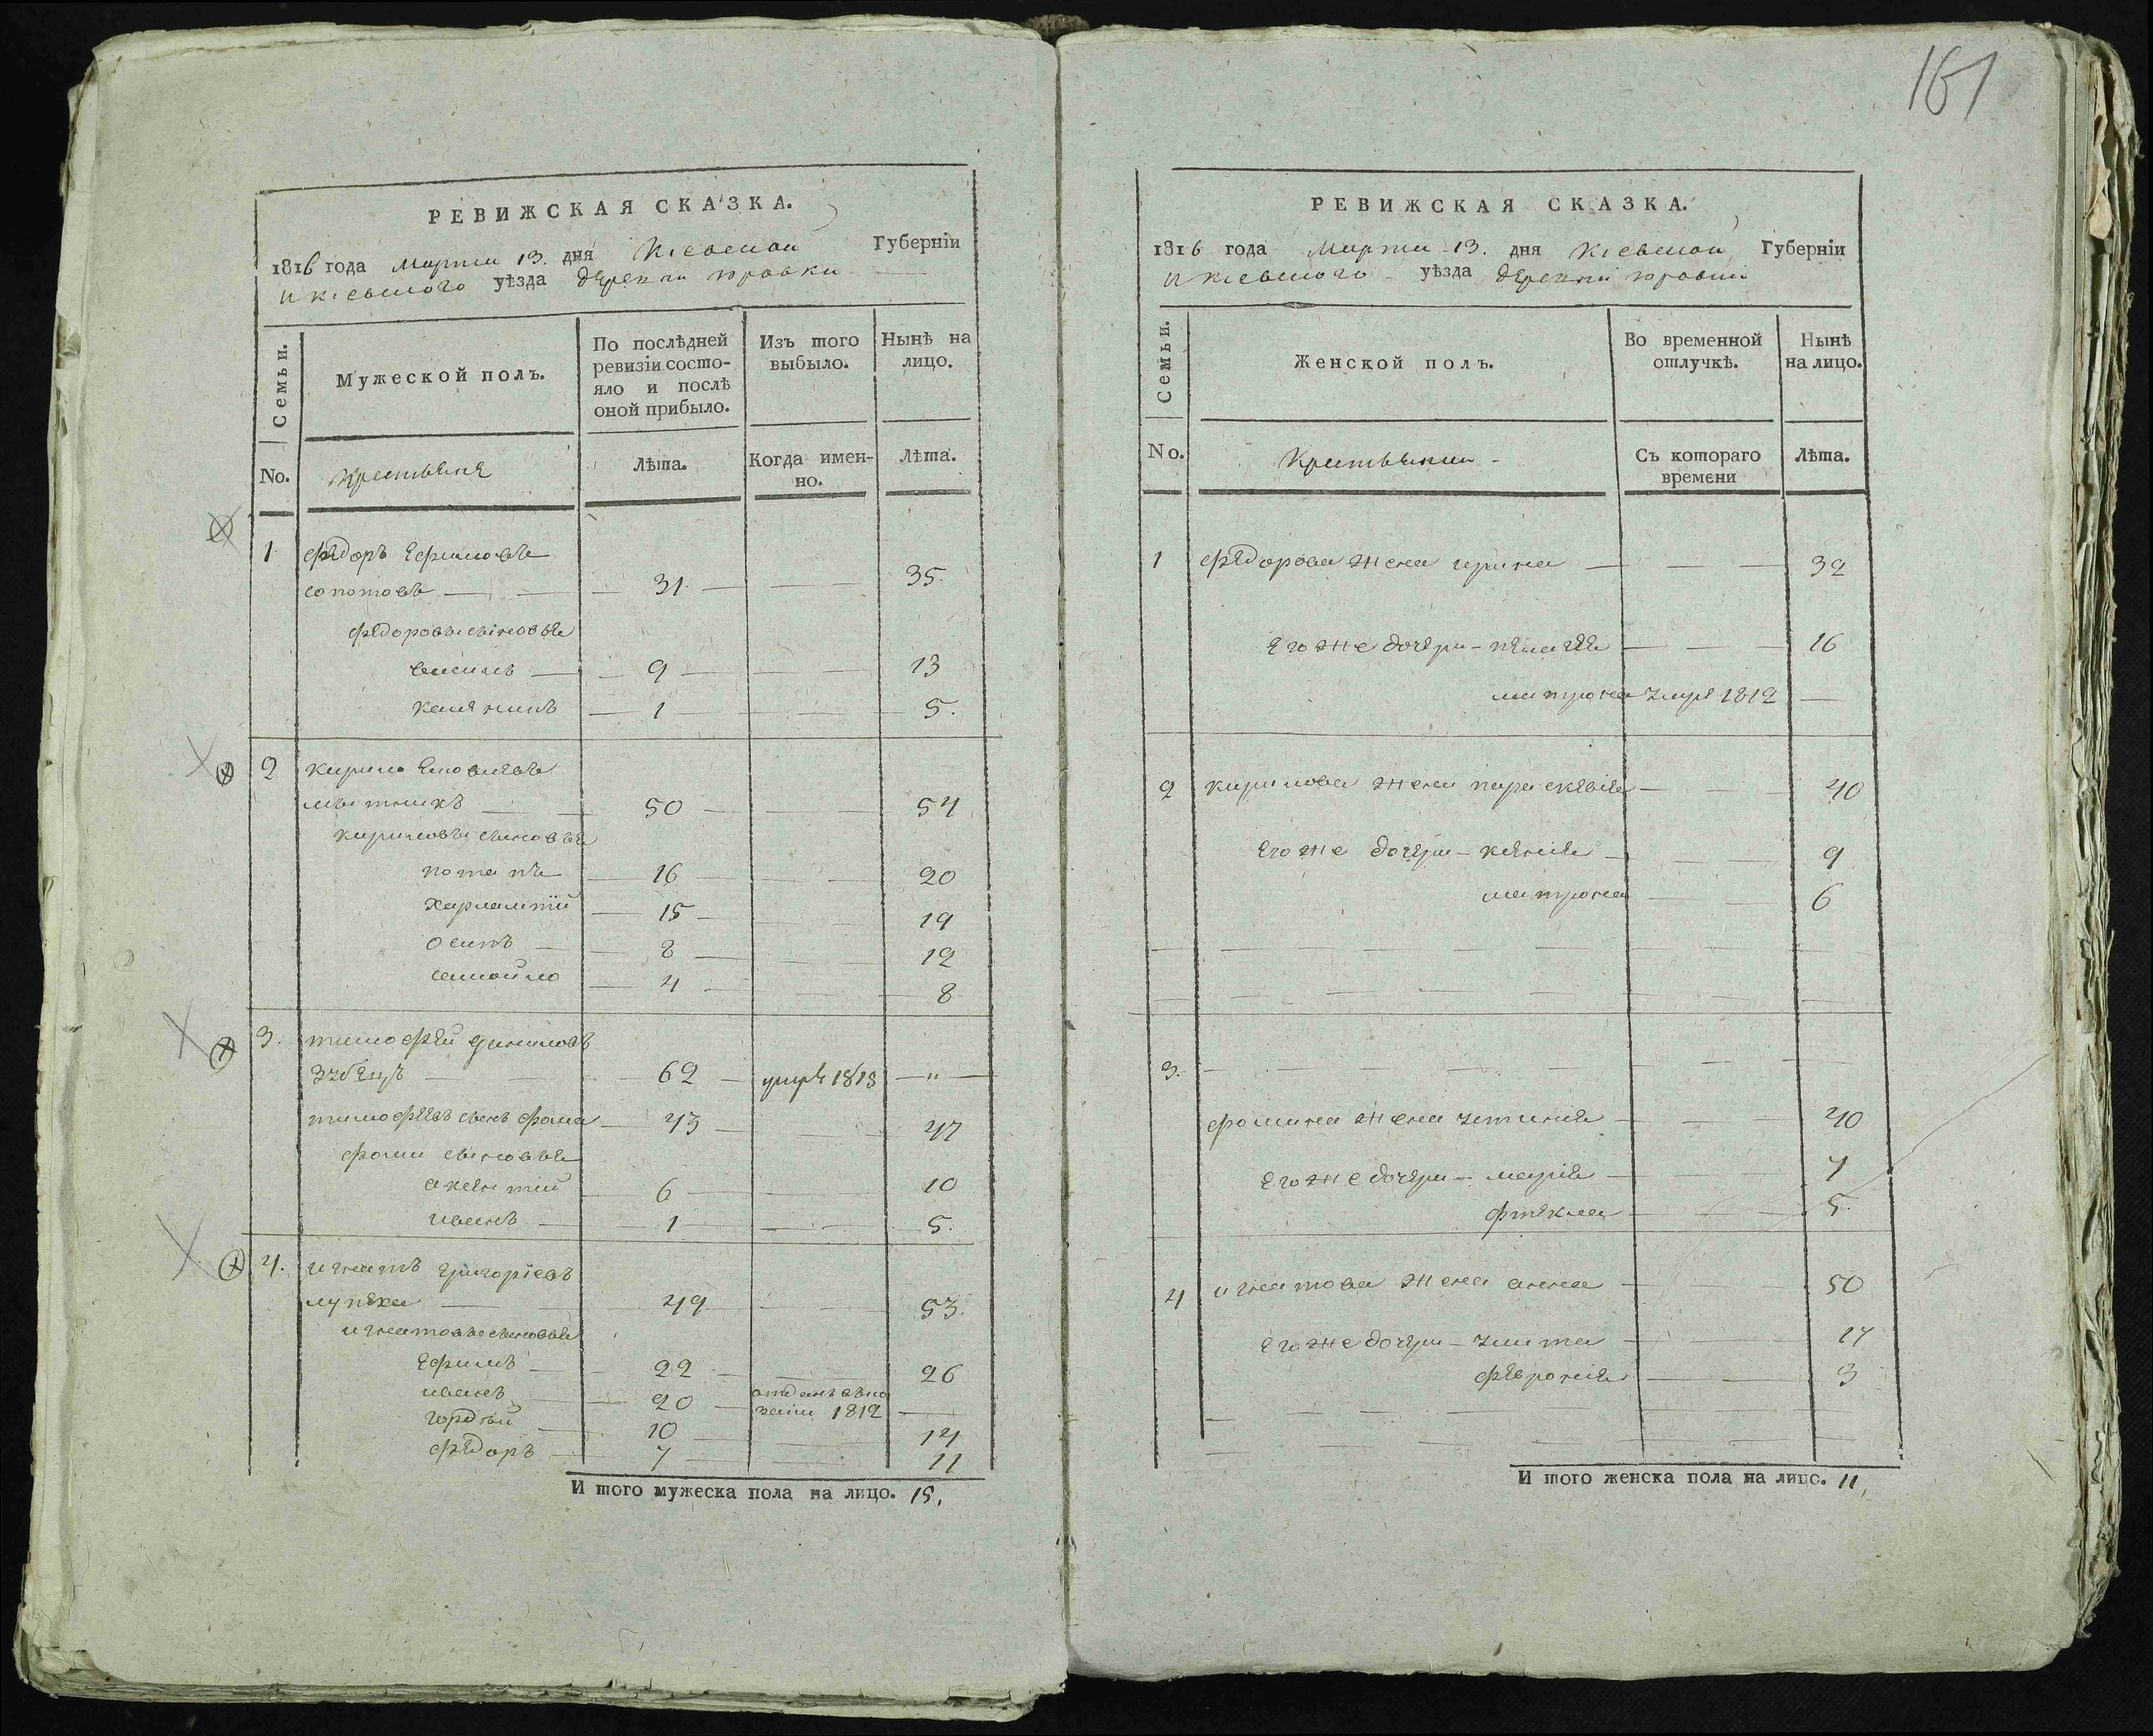 161
РЕВИЖСКАЯ СКАЗКА.
1816 года Марта 13. дня Кіевской Губерніи
и кіевского уѣзда деревни юровки
Семьи.
Мужеской полъ.
По послѣдней ревизіи состо-
яло и послѣ
оной прибыло.
Изъ того выбыло.
Нынѣ на лицо.
No.
Крестьяне
Лѣта.
Когда имен-
но.
Лѣта.
1 федоръ Ефимовъ
31. 35.
федоровы сыновья
9 13
1 5.
2 кирило
50 54
кириловы сыновья
потапъ 16 20
харлампій 15 19
осипъ 8 12
самойло 4 8
3. тимофей даниловъ
62 умре 1813 "
тимофеевъ сынъ фома 43 47
фомы сыновья
авксентій 6 10
иванъ 1 5.
4. игнатъ григоріевъ
49 53.
игнатовы сыновья
Ефимъ 22 26
иванъ 20 отданъ въ 1812
гордѣй 10 14
федоръ 7 11
И того мужеска пола на лицо. 15.
РЕВИЖСКАЯ СКАЗКА.
1816 года Марта 13. дня Кіевской Губерніи
и кіевского уѣзда деревни юровки
Семьи.
Женской полъ.
Во временной отлучкѣ.
Нынѣ на лицо.
No.
Крестьянки
Съ котораго времени
Лѣта.
1 федорова жена ирина 32
Его же дочери пелагея 16
матрона умре 1812
2 кирилова жена параскевія 40
Его же дочери ксенія 9
матрона 6
3.
фомина жена устинія 40
Его же дочери марія 7
фтекла 5.
4 игнатова жена анна 50
Его же дочери улита 17
февронія 3
И того женска пола на лицо. 11,